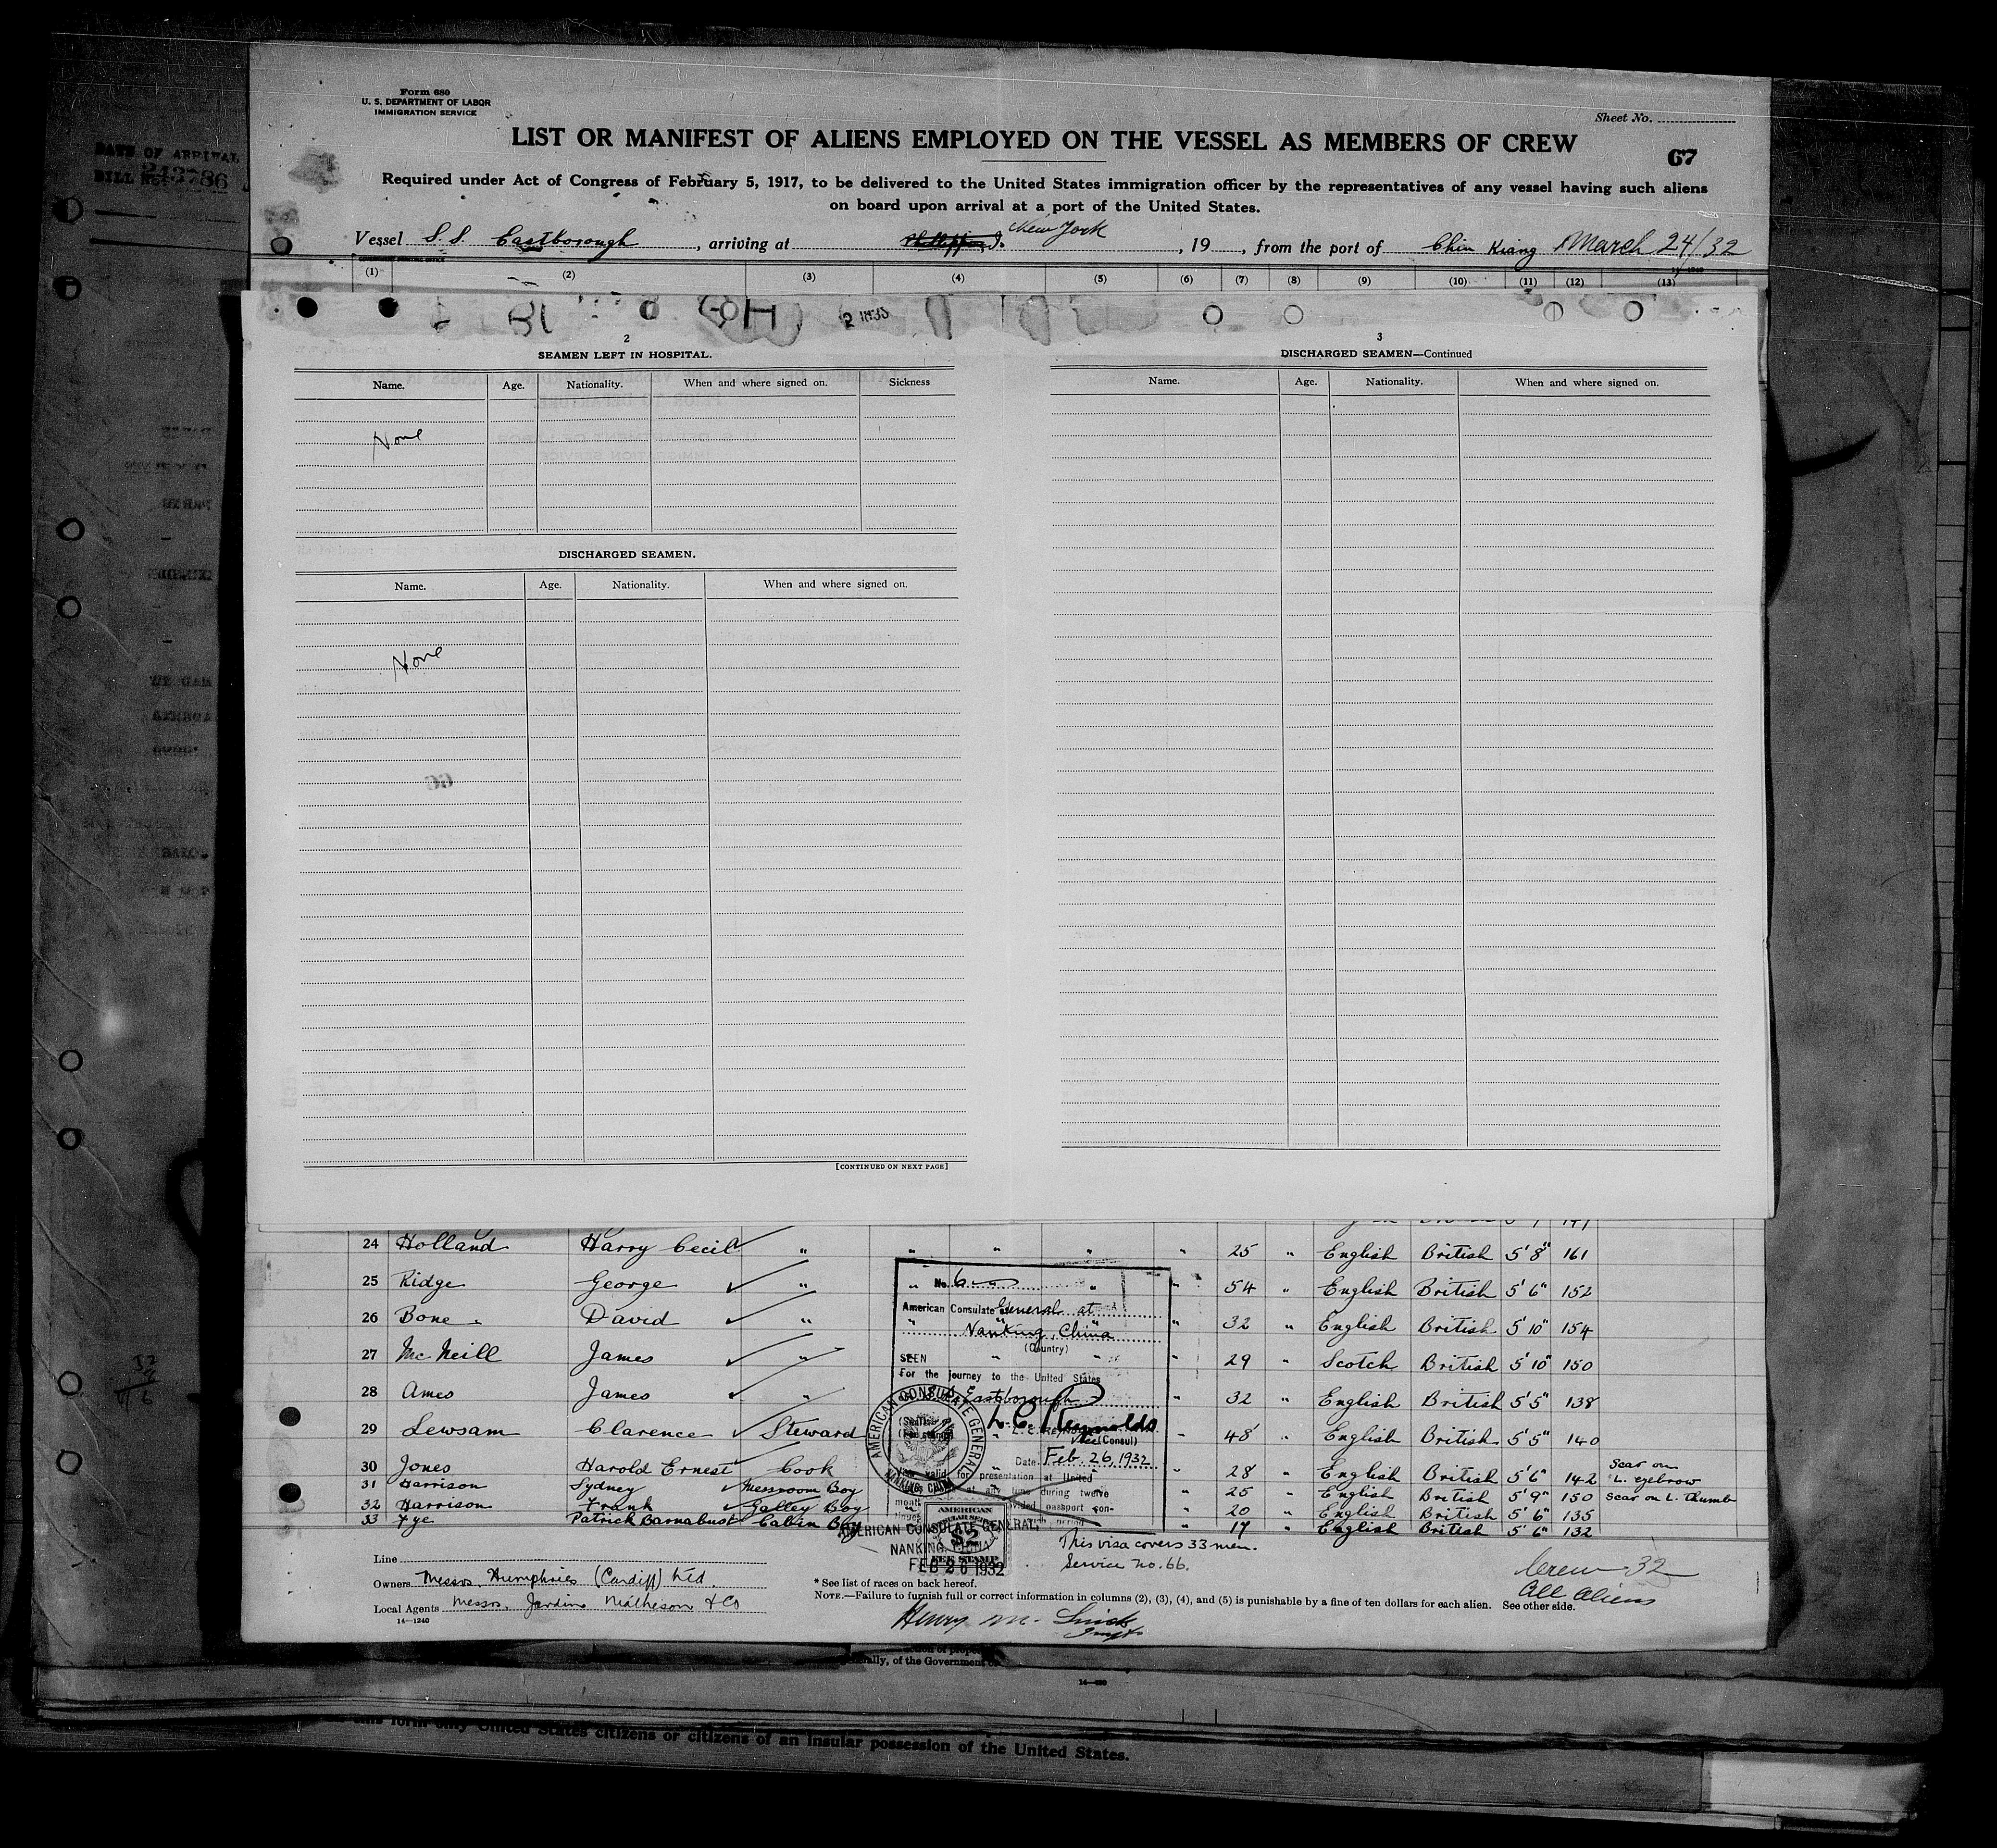 Form 680
U. S. DEPARTMENT OF LABOR
IMMIGRATION SERVICE
Sheet No.
LIST OR MANIFEST OF ALIENS EMPLOYED ON THE VESSEL AS MEMBERS OF CREW
67
Required under Act of Congress of February 5, 1917, to be delivered to the United States immigration officer by the representatives of any vessel having such aliens
on board upon arrival at a port of the United States.
Vessel S.S. Eastborough, arriving at New York, 19, from the port of Chin Kiang March 24/32
(1) (2) (3) (4) (5) (6) (7) (8) (9) (10) (11) (12) (13)
2
SEAMEN LEFT IN HOSPITAL.
Name. Age. Nationality. When and where signed on. Sickness
None
DISCHARGED SEAMEN.
Name. Age. Nationality. When and where signed on.
None
66
[CONTINUED ON NEXT PAGE]
3
DISCHARGED SEAMEN—Continued
Name. Age. Nationality. When and where signed on.
24 Holland Harry Cecil " " " " " 25 " English British 5' 8" 161
25 Ridge George " " " " 54 " English British 5' 6" 152
26 Bone David " " " " 32 " English British 5' 10" 154
27 McNeill James " " " " 29 " Scotch British 5' 10" 150
28 Ames James " " 32 " English British 5' 5" 138
29 Lewsam Clarence Steward " " 48 " English British 5' 5" 140
30 Jones Harold Ernest Cook " " 28 " English British 5' 6" 142 Scar on L. eyebrow
31 Harrison Sydney Messroom Boy " 25 " English British 5' 9" 150 Scar on L. thumb
32 Harrison Frank Galley Boy " 20 " English British 5' 6" 135
33 Fye Patrick Barnabust Cabin Boy " 17 " English British 5' 6" 132
No.
American Consulate General at
Nanking, China
(Country)
SEEN
For the journey to the United States
Eastborough
L. C. Reynolds
Vice (Consul)
Date Feb. 26, 1932
valid for presentation at United
at any time during twelve
passport con-
period
AMERICAN CONSULATE GENERAL
NANKING, CHINA
AMERICAN
$2
FEE STAMP
AMERICAN CONSULATE GENERAL,
NANKING, CHINA
FEB 26 1932
This visa covers 33 men.
Service no. 66.
Line
Owners Messrs. Humphries (Cardiff) Ltd.
Local Agents Messrs. Jardine Matheson & Co
14—1240
* See list of races on back hereof.
NOTE.—Failure to furnish full or correct information in columns (2), (3), (4), and (5) is punishable by a fine of ten dollars for each alien. See other side.
Crew 32
All Aliens
Henry M.
DATE OF ARRIVAL
BILL NO.
this form only United States citizens or citizens of an insular possession of the United States.